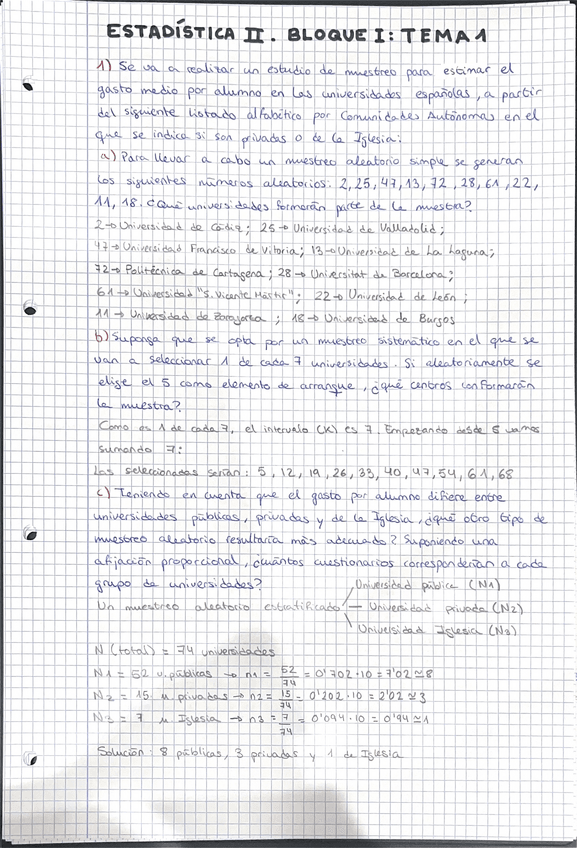 ESTADÍSTICA II. BLOQUE I: TEMA 1
1) Se va a realizar un estudio de muestreo para estimar el
gasto medio por alumno en las universidades españolas, a partir
del siguiente listado alfabético por Comunidades Autónomas en el
que se indica si son privadas o de la Iglesia:
a) Para llevar a cabo un muestreo aleatorio simple se generan
los siguientes números aleatorios: 2, 25, 47, 13, 72, 28, 61, 22,
11, 18. ¿Qué universidades formarán parte de la muestra?
2→Universidad de Cádiz; 25→Universidad de Valladolid;
47→Universidad Francisco de Vitoria; 13→Universidad de La Laguna;
72→Politécnica de Cartagena; 28→Universitat de Barcelona;
61→Universidad "S. Vicente Mártir"; 22→Universidad de León;
11→Universidad de Zaragoza; 18→Universidad de Burgos
b) Suponga que se opta por un muestreo sistemático en el que se
van a seleccionar 1 de cada 7 universidades. Si aleatoriamente se
elige el 5 como elemento de arranque, ¿qué centros conformarán
la muestra?
Como es 1 de cada 7, el intervalo (K) es 7. Empezando desde 5 vamos
sumando 7:
Las seleccionadas serían: 5, 12, 19, 26, 33, 40, 47, 54, 61, 68
c) Teniendo en cuenta que el gasto por alumno difiere entre
universidades públicas, privadas y de la Iglesia, ¿qué otro tipo de
muestreo aleatorio resultaría más adecuado? Suponiendo una
afijación proporcional, ¿cuántos cuestionarios corresponderían a cada
grupo de universidades?
Universidad pública (N1)
Un muestreo aleatorio estratificado — Universidad privada (N2)
Universidad Iglesia (N3)
N (total) = 74 universidades
N1 = 52 u. públicas → n1 = 52/74 = 0'702·10 = 7'02 ≃ 8
N2 = 15 u privadas → n2 = 15/74 = 0'202·10 = 2'02 ≃ 3
N3 = 7 u Iglesia → n3 = 7/74 = 0'094·10 = 0'94 ≃ 1
Solución: 8 públicas, 3 privadas y 1 de Iglesia